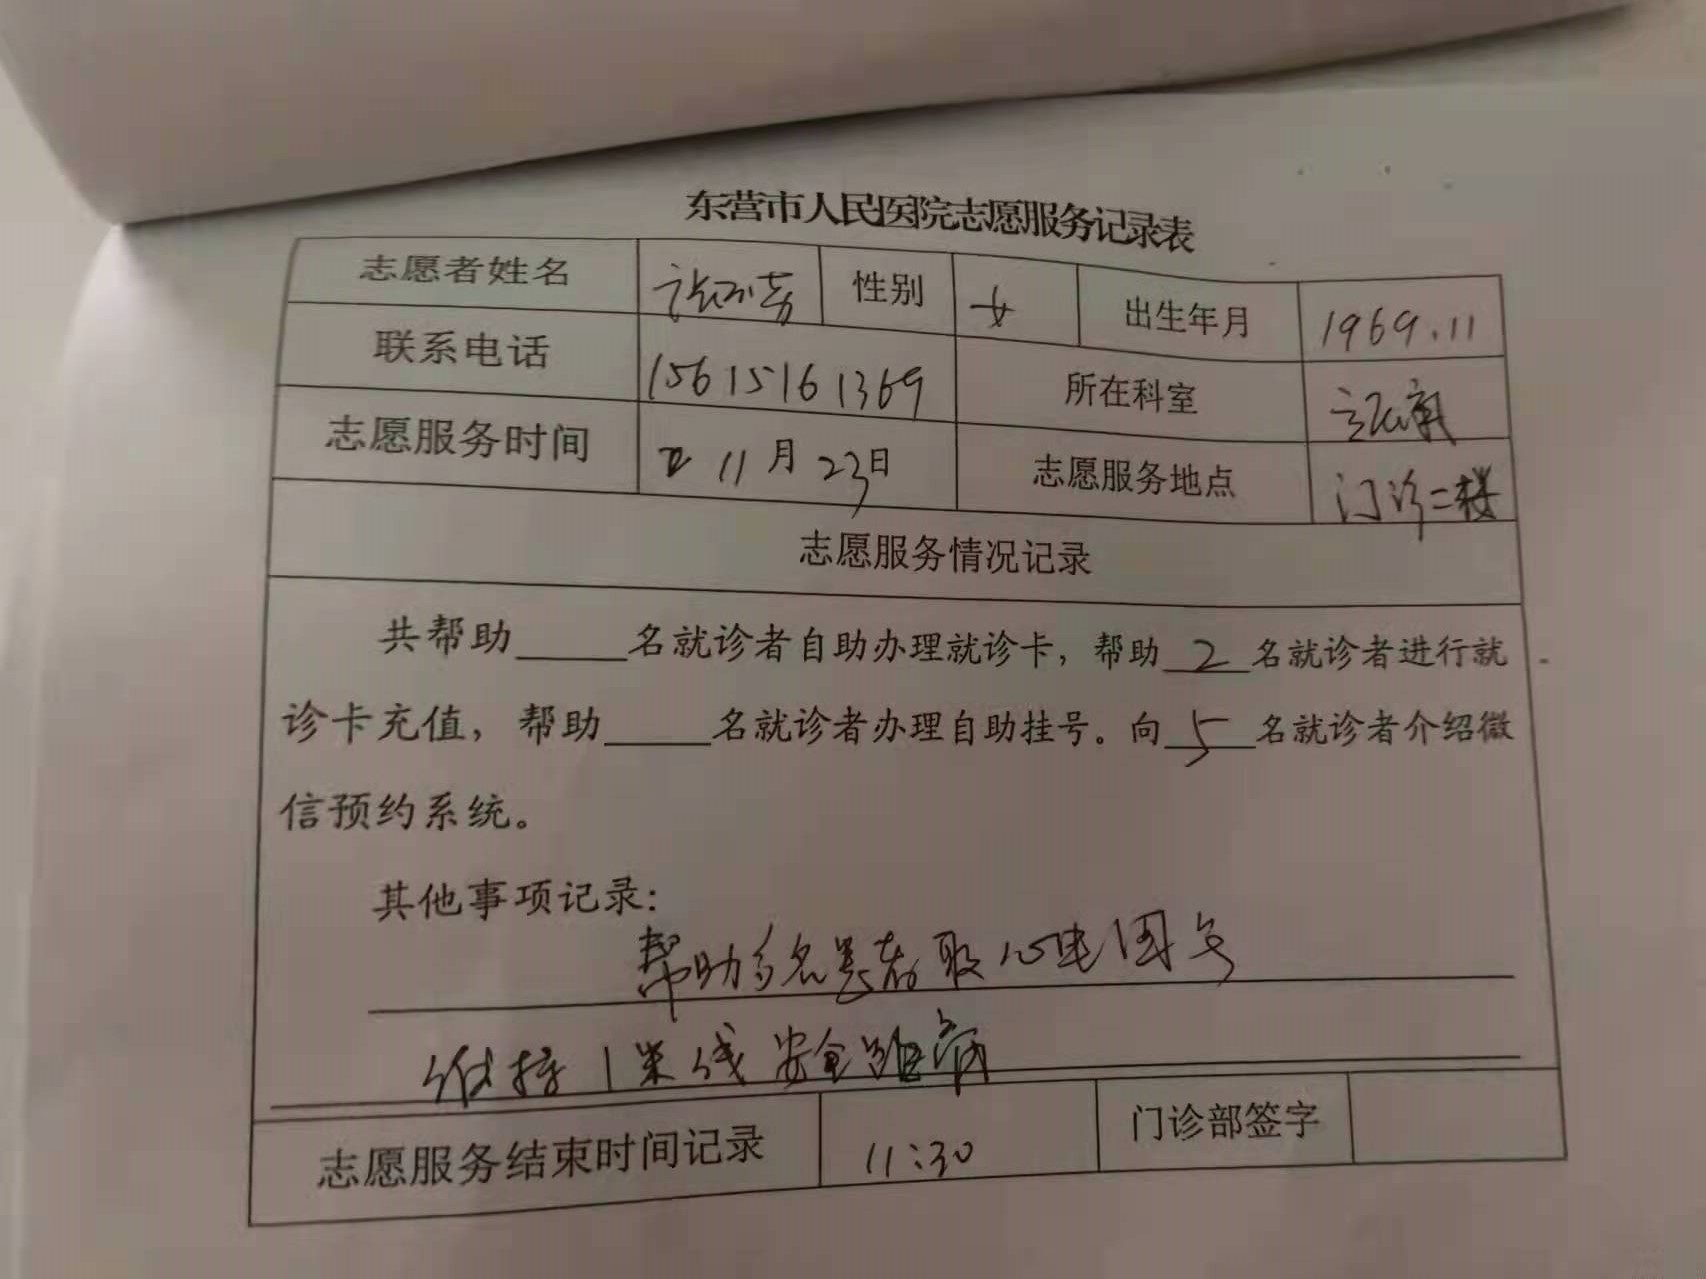 东营市人民医院志愿服务记录表
志愿者姓名 性别 女 出生年月 1969.11
联系电话 15615161369 所在科室
志愿服务时间 11月23日 志愿服务地点 门诊二楼
志愿服务情况记录
共帮助____名就诊者自助办理就诊卡，帮助 2 名就诊者进行就
诊卡充值，帮助____名就诊者办理自助挂号。向 5 名就诊者介绍微
信预约系统。
其他事项记录：
帮助多名患者取心电图号
维持1米线安全距离
志愿服务结束时间记录 11:30 门诊部签字